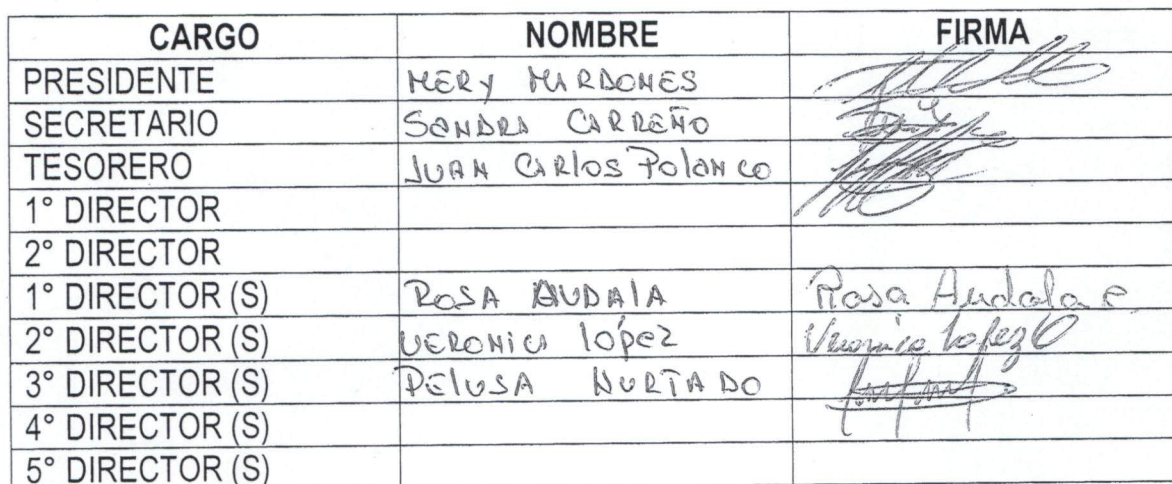 CARGO NOMBRE FIRMA
PRESIDENTE MERY MARDONES
SECRETARIO SANDRA CARREÑO
TESORERO JUAN CARLOS POLANCO
1° DIRECTOR
2° DIRECTOR
1° DIRECTOR (S) ROSA AUDALA Rosa Audala
2° DIRECTOR (S) VERONICA LÓPEZ Veronica Lopez
3° DIRECTOR (S) PELUSA HURTADO
4° DIRECTOR (S)
5° DIRECTOR (S)